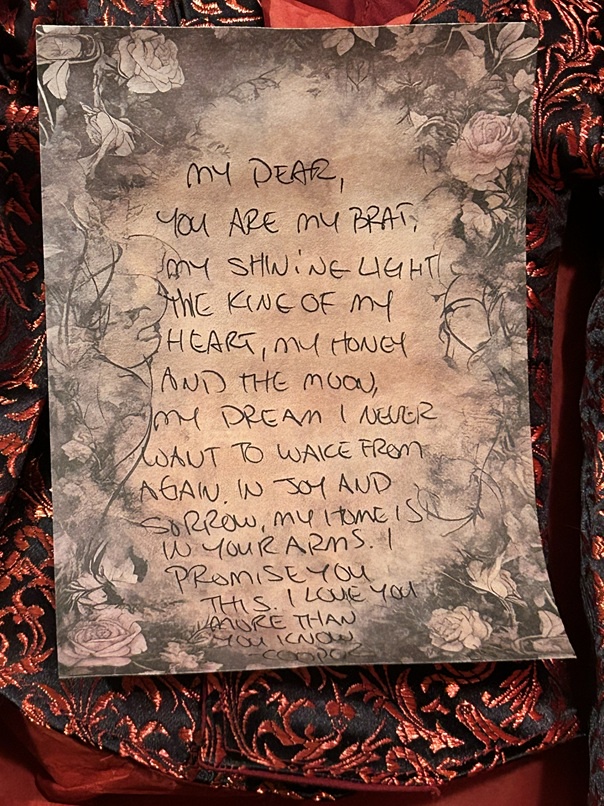 MY DEAR,
YOU ARE MY BRAT,
MY SHINiNE LIGHT
THE KING OF MY
HEART, MY HONEY
AND THE MOON,
MY DREAM I NEVER
WANT TO WAKE FROM
AGAIN. IN JOY AND
SORROW, MY HOME IS
IN YOUR ARMS. I
PROMISE YOU
THIS. I LOVE YOU
MORE THAN
YOU KNOW